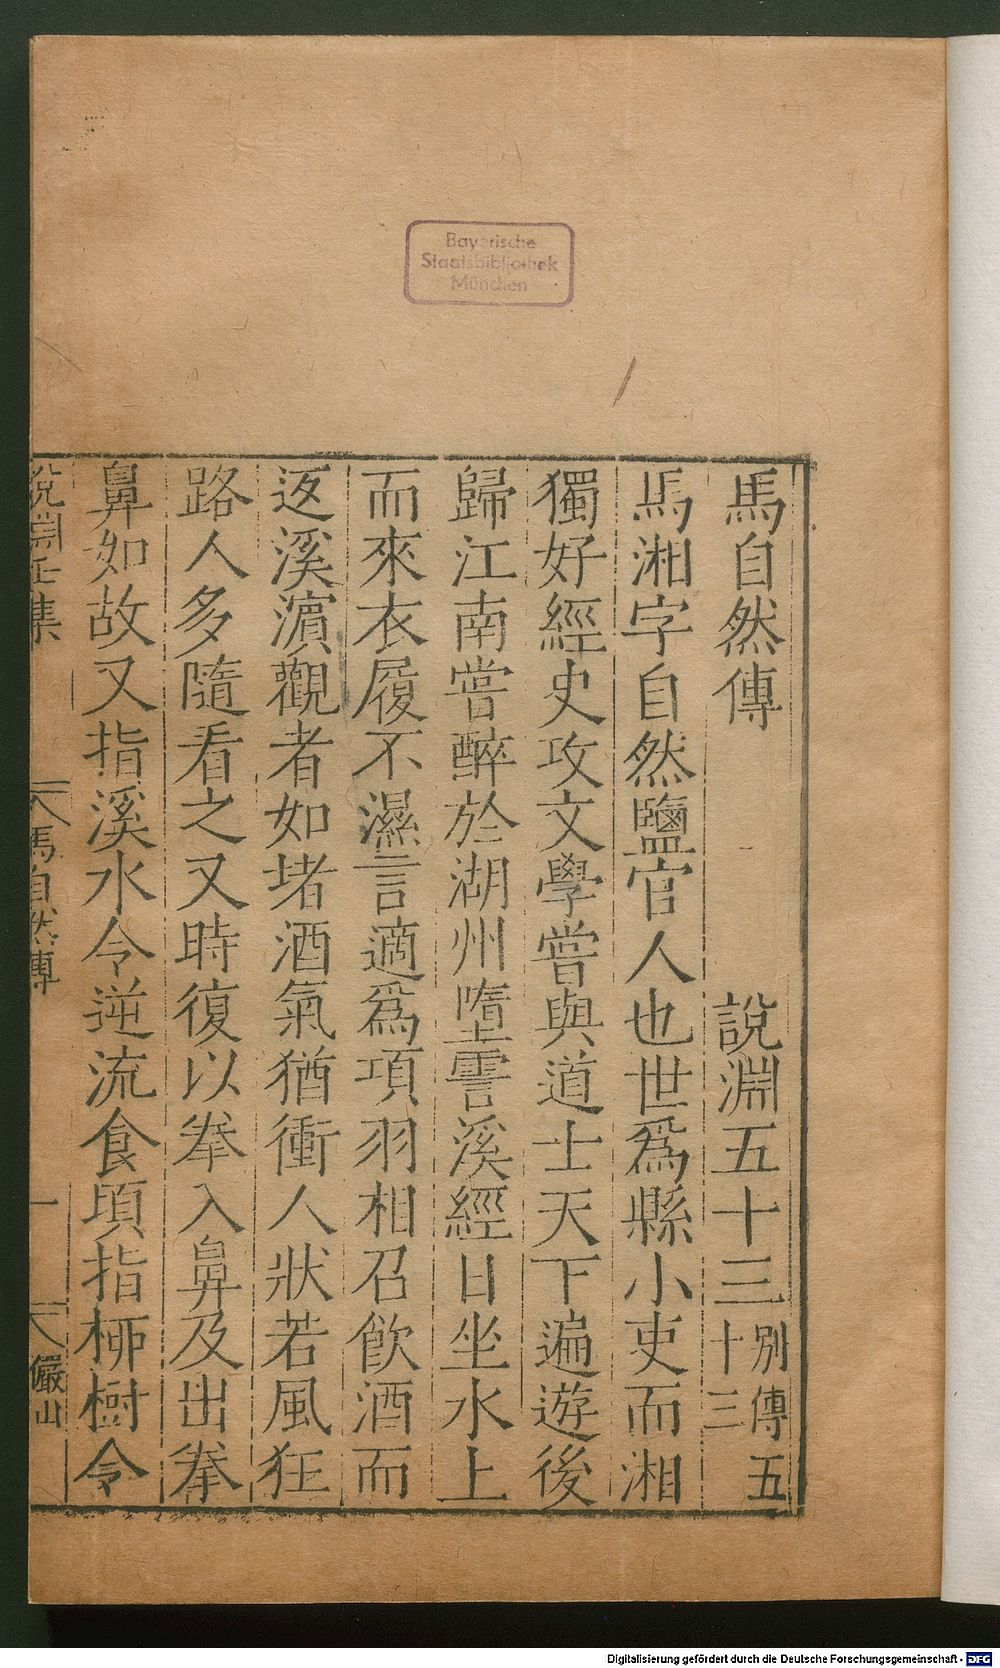 Bayerische
Staatsbibliothek
München
馬自然傳 說淵五十三 別傳五十三
馬湘字自然鹽官人也世爲縣小吏而湘
獨好經史攻文學嘗與道士天下遍遊後
歸江南嘗醉於湖州墮霅溪經日坐水上
而來衣履不濕言適爲項羽相召飲酒而
返溪濵觀者如堵酒氣猶衝人狀若風狂
路人多隨看之又時復以拳入鼻及出拳
鼻如故又指溪水令逆流食頃指柳樹令
說淵壬集 馬自然傳 一 儼山
Digitalisierung gefördert durch die Deutsche Forschungsgemeinschaft - DFG